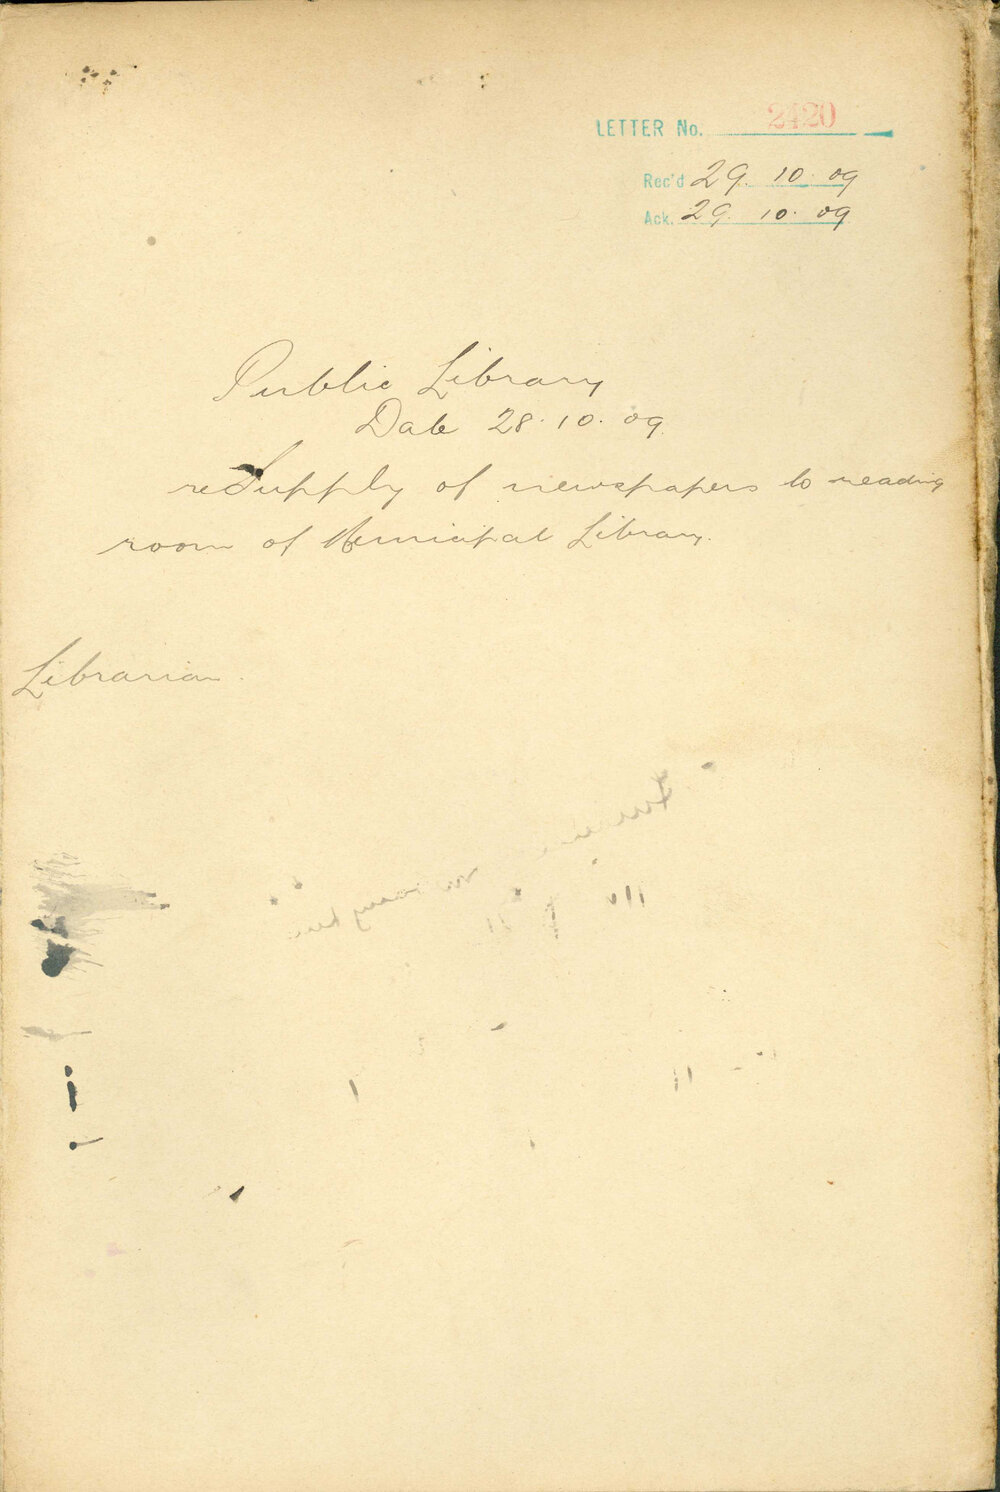 LETTER No. 2420
Rec'd 29. 10. 09
Ack. 29. 10. 09
Public Library
Date 28. 10. 09.
re Supply of newspapers to reading
room of Municipal Library.
Librarian.